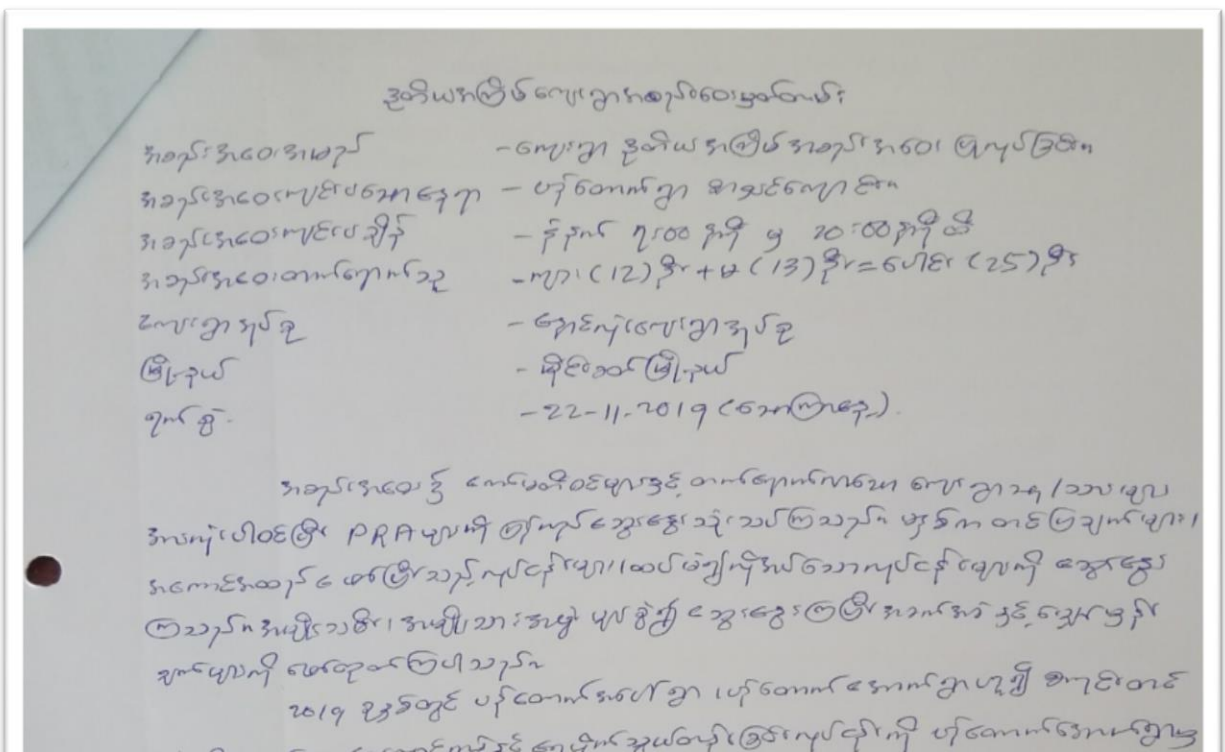 ဒုတိယအကြိမ်ကျေးရွာအစည်းဝေးမှတ်တမ်း
အစည်းအဝေးအမည် - ကျေးရွာ ဒုတိယအကြိမ် အစည်းအဝေး ပြုလုပ်ခြင်း။
အစည်းအဝေးကျင်းပသောနေရာ - ပန်တောက်ရွာ စာသင်ကျောင်း။
အစည်းအဝေးကျင်းပချိန် - နံနက် ၇:၀၀ နာရီ မှ ၁၀:၀၀ နာရီ ထိ
အစည်းအဝေးတက်ရောက်သူ - ကျား (12) ဦး + မ (13) ဦး = ပေါင်း (25) ဦး
ကျေးရွာအုပ်စု - နောင်လုံးကျေးရွာအုပ်စု
မြို့နယ် - မိုင်းခတ်မြို့နယ်
ရက်စွဲ - 22-11-2019 (သောကြာနေ့)
အစည်းအဝေး၌ ကော်မတီဝင်များနှင့် တက်ရောက်လာသော ကျေးရွာသူ/သားများ
အားလုံးပါဝင်ပြီး PRA များကို ပြန်လည်ဆွေးနွေးသုံးသပ်ကြသည်။ မနှစ်က တင်ပြချက်များ၊
အကောင်အထည် ဖော်ပြီးသည့်လုပ်ငန်းများ၊ ထပ်မံ၍လိုအပ်သောလုပ်ငန်းများကို ဆွေးနွေး
ကြသည်။ အမျိုးသမီး၊ အမျိုးသားအဖွဲ့ များခွဲ၍ ဆွေးနွေးကြပြီး အခက်အခဲ နှင့် မျှော်မှန်း
ချက်များကို ဖော်ထုတ်ကြပါသည်။
2019 ခုနှစ်တွင် ပန်တောက်အပေါ်ရွာ၊ ပန်တောက်အောက်ရွာဟူ၍ စာရင်းတင်